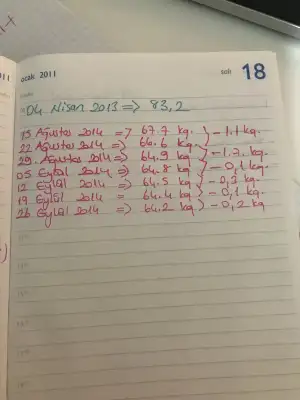 ocak 2011
salı 18
04 Nisan 2013 => 83,2
15 Ağustos 2014 => 67.7 kg.
22 Ağustos 2014 => 66.6 kg. } - 1.1 kg.
29. Ağustos 2014 => 64.9 kg. } - 1.7. kg.
05 Eylül 2014 => 64.8 kg } - 0,1 kg.
12 Eylül 2014 => 64.5 kg } - 0,3 kg.
19 Eylül 2014 => 64.4 kg } - 0,1 kg.
26 Eylül 2014 => 64.2 kg } - 0,2 kg